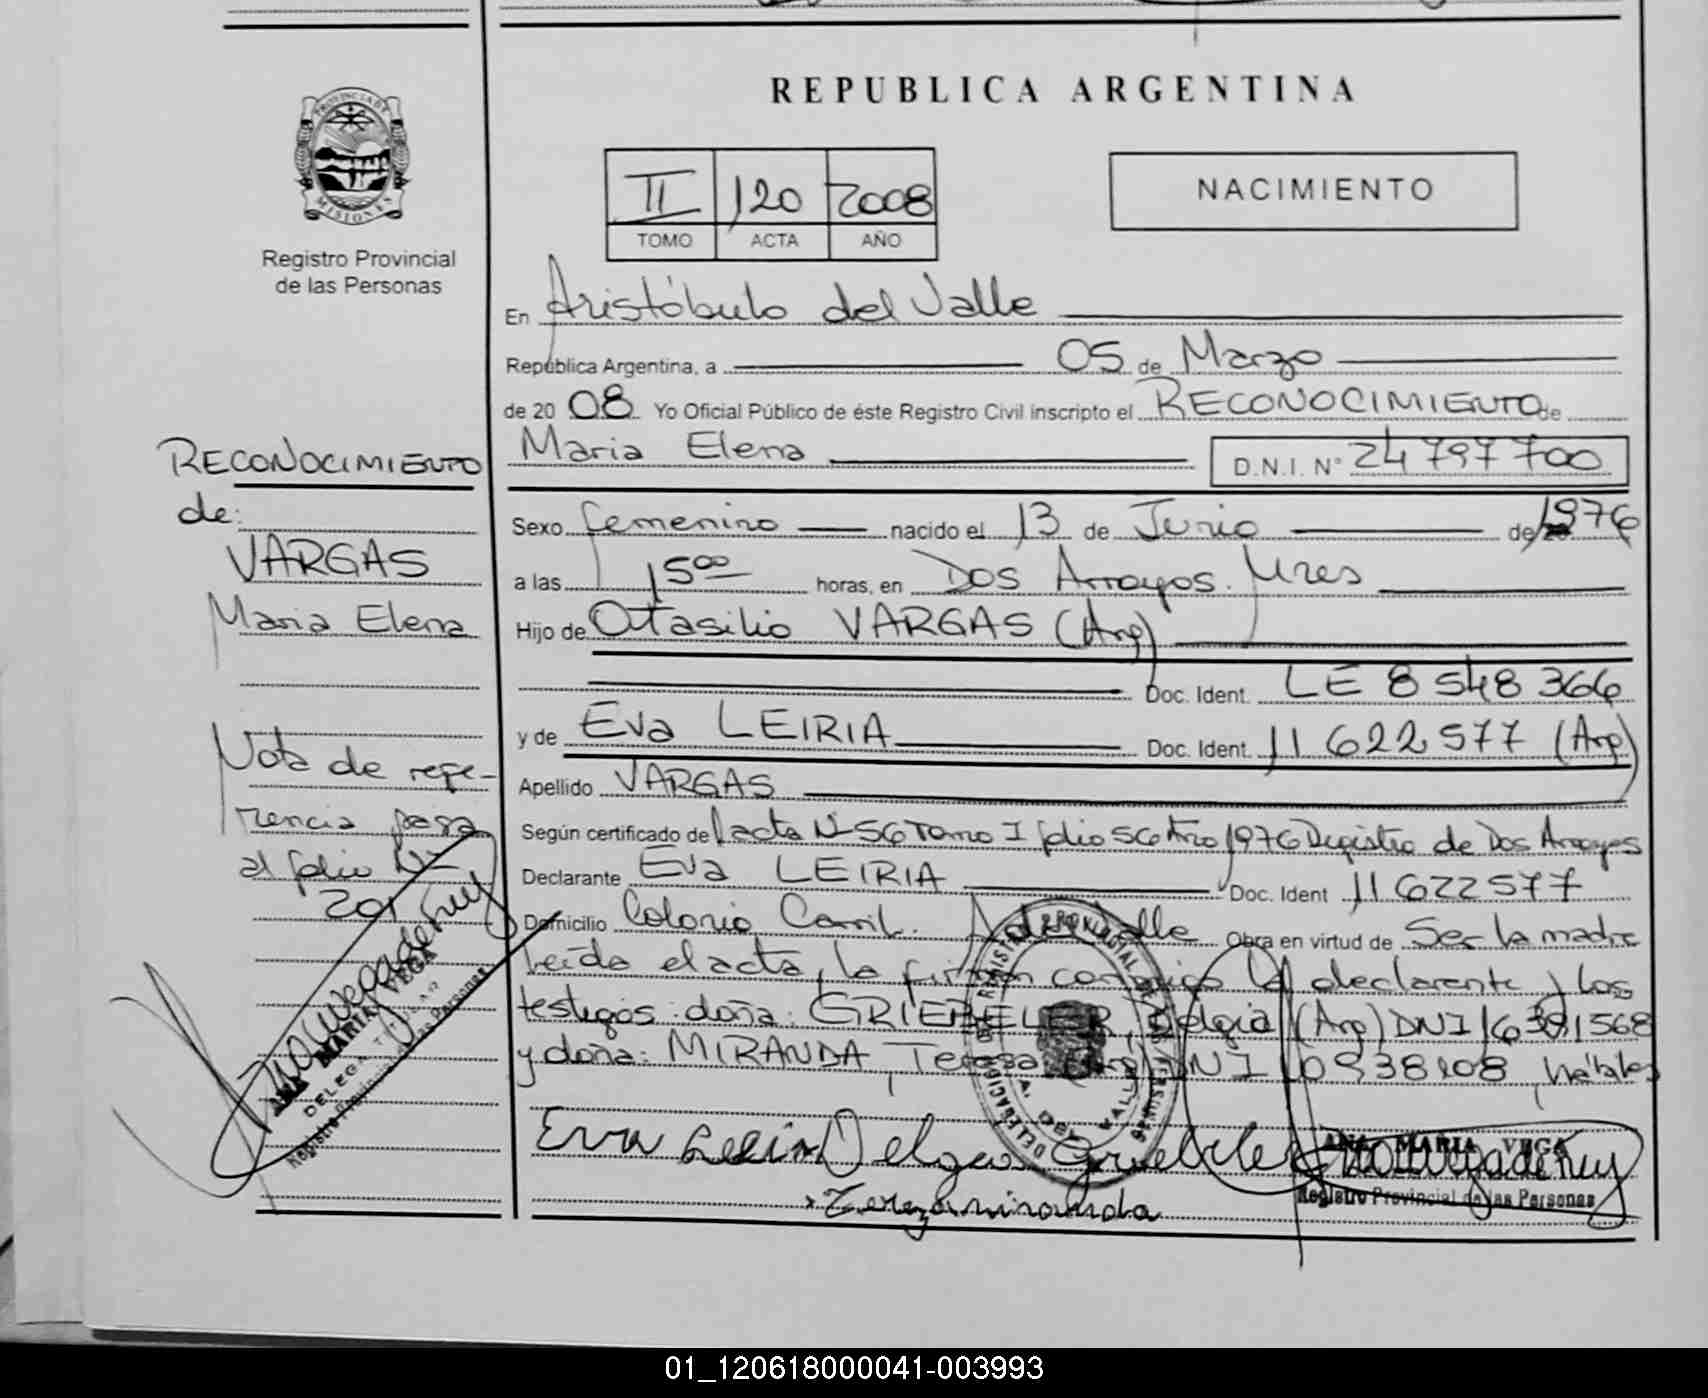 REPUBLICA ARGENTINA
PROVINCIA DE
MISIONES
Registro Provincial
de las Personas
II 120 2008
TOMO ACTA AÑO
NACIMIENTO
En Aristóbulo del Valle
República Argentina, a 05 de Marzo
de 20 08 Yo Oficial Público de éste Registro Civil inscripto el RECONOCIMIENTO de
Maria Elena D.N.I. N° 24 797 700
Sexo femenino nacido el 13 de Junio de 1976
a las 15 00 horas, en Dos Arroyos. Mnes
Hijo de Otasilio VARGAS (Arg)
Doc. Ident. LE 8 548 366
y de Eva LEIRIA Doc. Ident. 11 622 577 (Arg)
Apellido VARGAS
Según certificado de acta N° 56 Tomo I folio 56 Año 1976 Registro de Dos Arroyos
Declarante Eva LEIRIA Doc. Ident 11 622 577
Domicilio Colonia Valle Obra en virtud de Ser la madre
Leída el acta, la firman conmigo la declarante y los
testigos: doña: GRIEBELER, (Arg) DNI
y doña: MIRANDA, Teresa (Arg) DNI hábiles
Eva Leiria
Terezamiranda
ANA MARIA VEGA
Registro Provincial de las Personas
RECONOCIMIENTO
de:
VARGAS
Maria Elena
Nota de refe-
rencia pasa
al folio N°
201
ANA MARIA VEGA
DELEGA TITULAR
Registro Provincial de las Personas
01_120618000041-003993